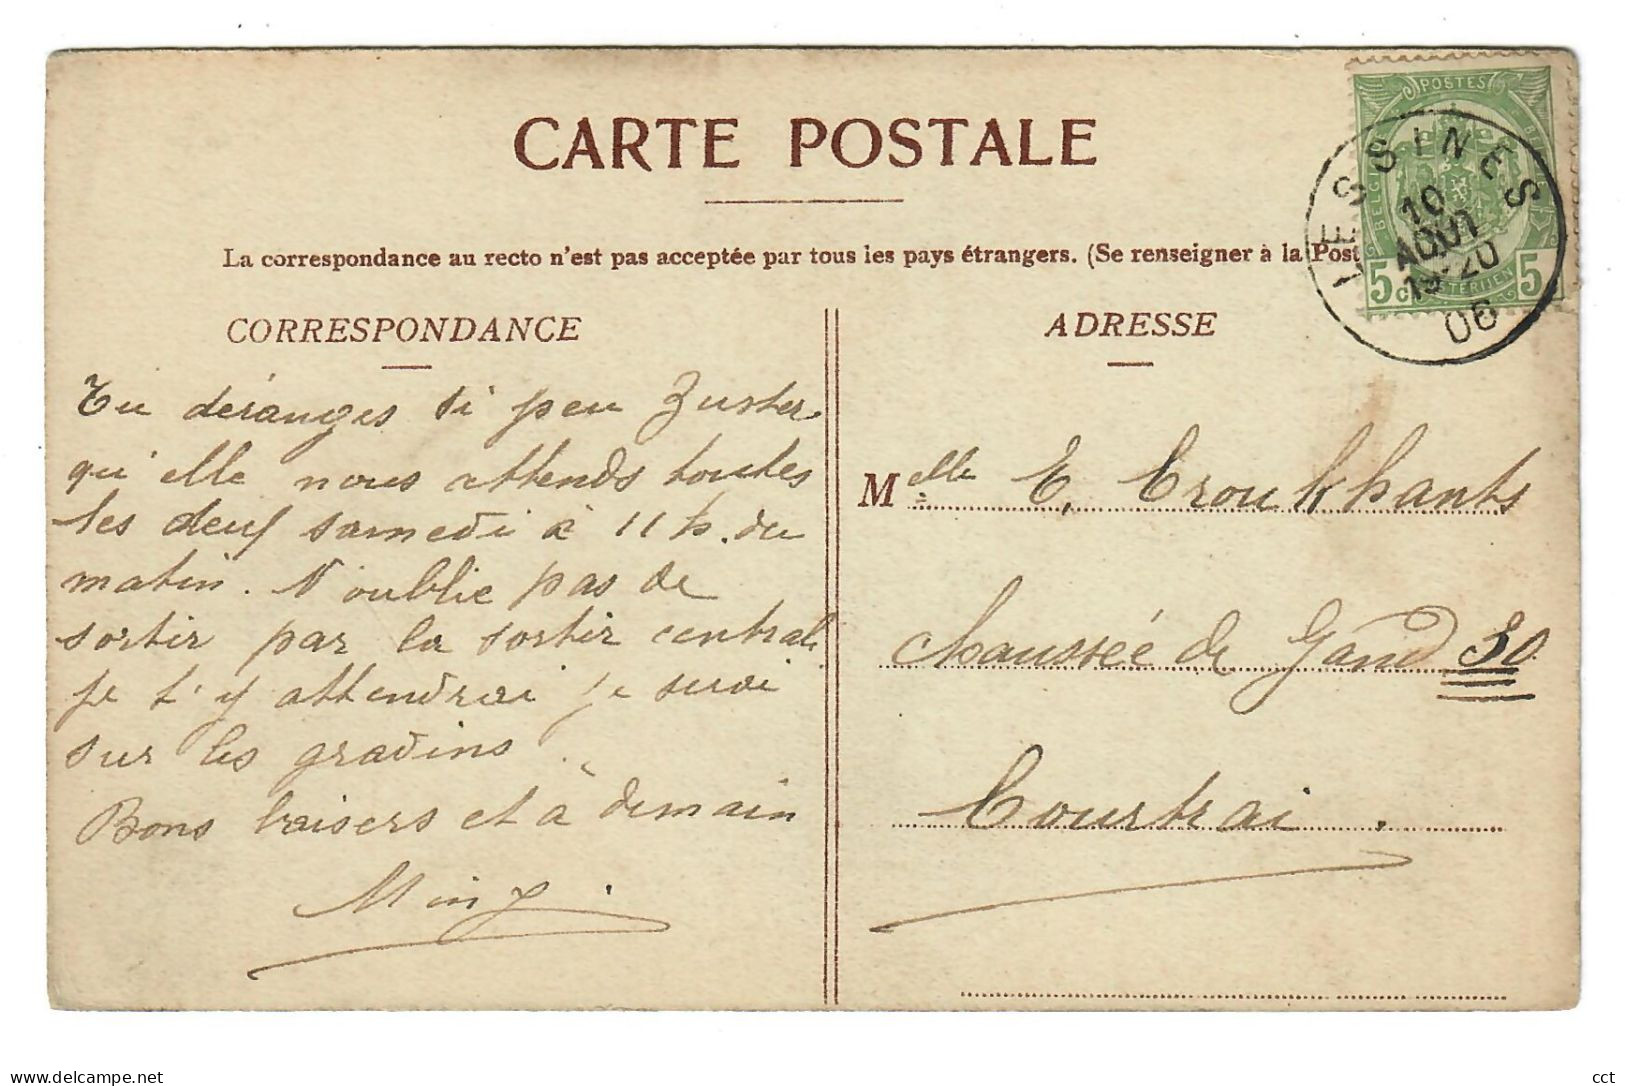 CARTE POSTALE
POSTES
BELGI
5c
5
LESSINES
10
AOUT
19-20
06
La correspondance au recto n'est pas acceptée par tous les pays étrangers. (Se renseigner à la Post
CORRESPONDANCE
Tu déranges si peu Zuster
qu'elle nous attends toutes
les deux samedi à 11 h. du
matin. N'oublie pas de
sortir par la sortir central.
je t'y attendrai je serai
sur les gradins.
Bons baisers et à demain
Miny.
ADRESSE
Melle E. Croukhants
Chaussée de Gand 50
Courtrai.
www.delcampe.net
cct